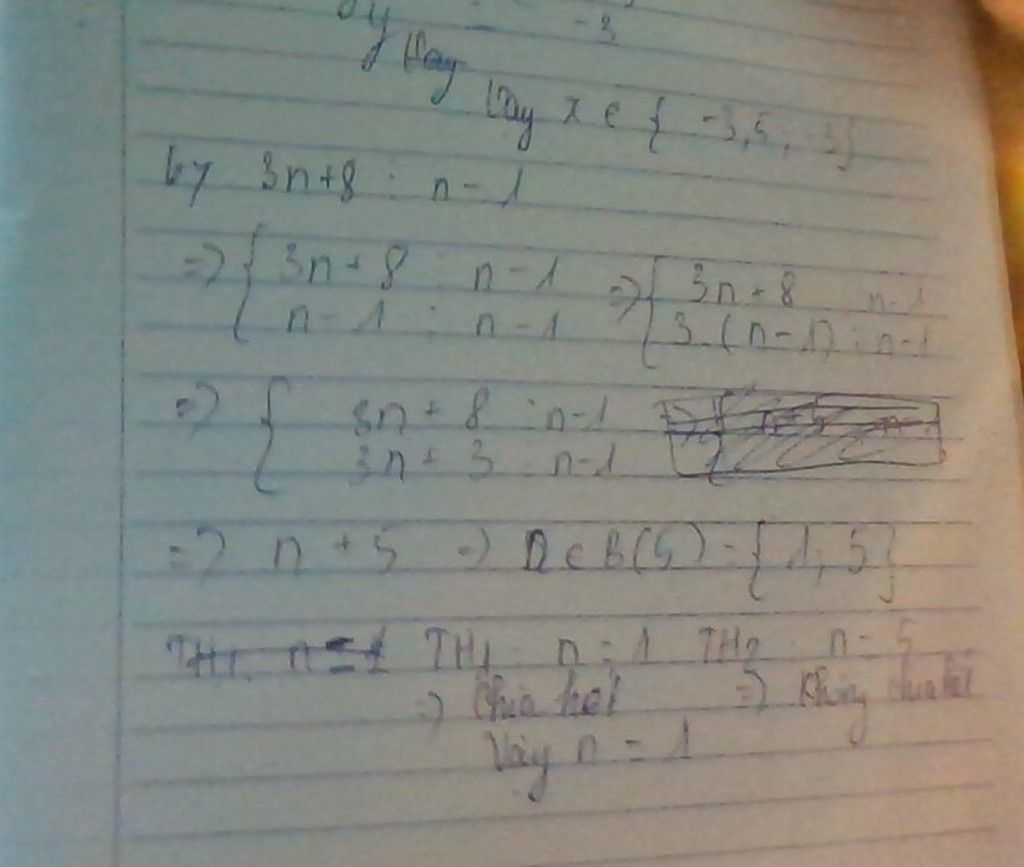 -3
Vậy x ∈ { -3,5, -3}
b, 3n+8 ⋮ n-1
=> { 3n+8 ⋮ n-1 => { 3n+8 n-1
n-1 ⋮ n-1 3.(n-1) ⋮ n-1
=> { 3n+8 ⋮ n-1
3n+3 ⋮ n-1
=> n + 5 => n ∈ B(5) = {1; 5}
TH1 n = 1 TH2 n = 5
=> Chia hết => Không chia hết
Vậy n = 1